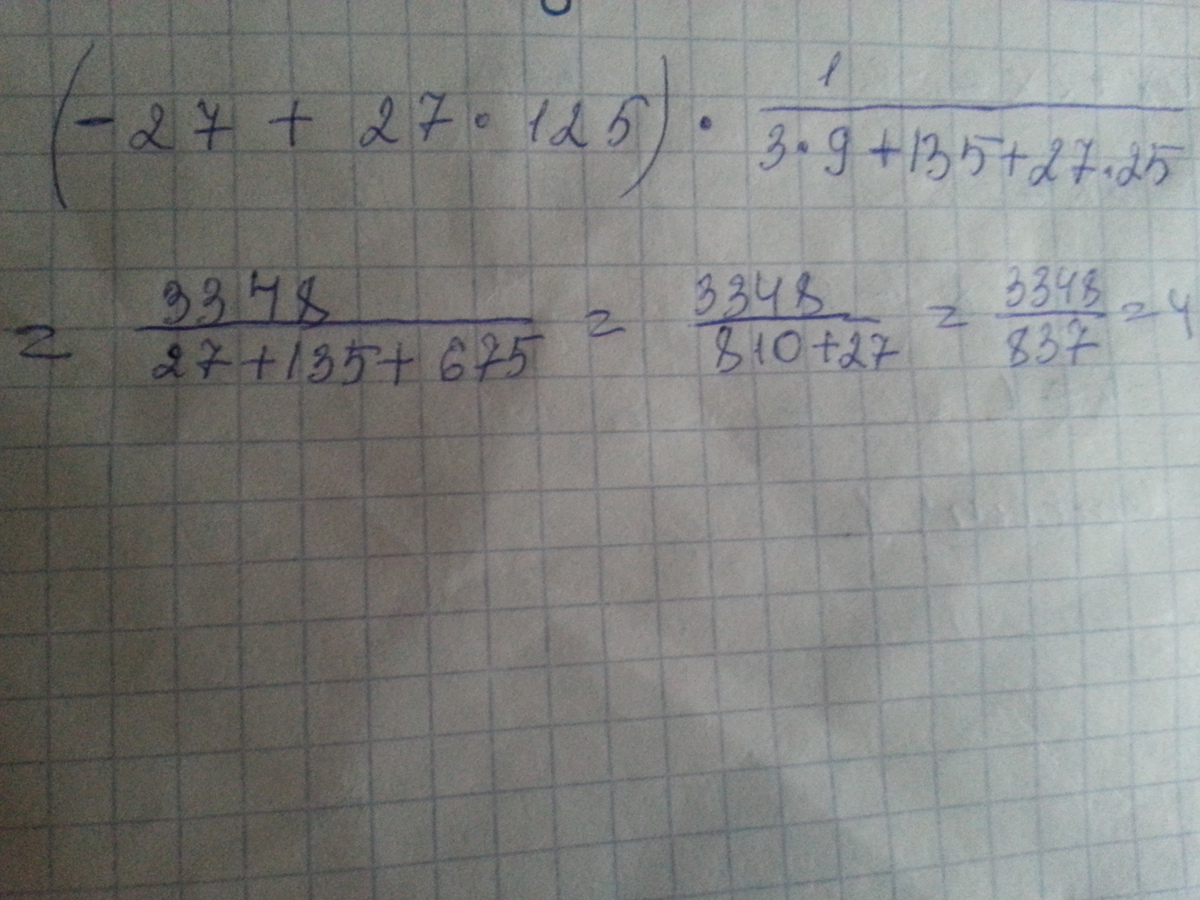 (-27 + 27 · 125) · 1/(3·9+135+27·25)
= 3348/(27+135+675) = 3348/(810+27) = 3348/837 = 4